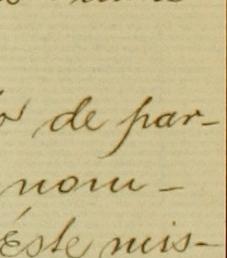 de par-
nom-
Éste mis-